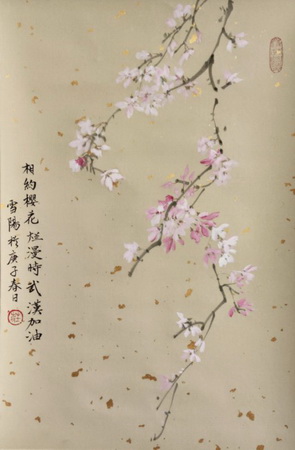 相約櫻花烂漫時武漢加油
雪陽於庚子春日